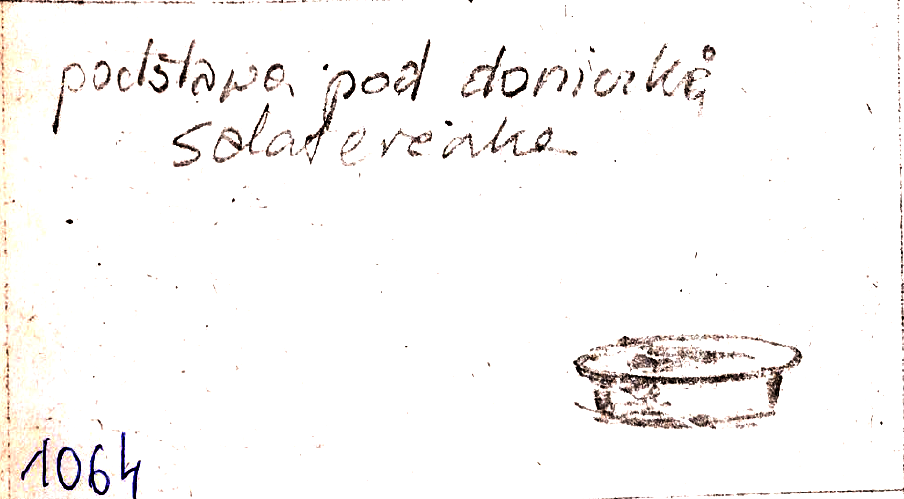 podstawa pod doniczkę
salaterečnka
1064